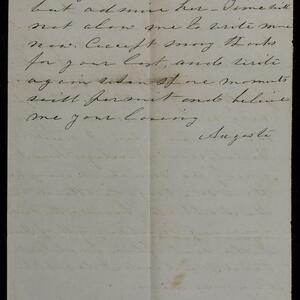 but admire her - Time will
not alow me to write more
now. Except many thanks
for your last, and write
again when spare moments
will permit and believe
me your loving
Auguste